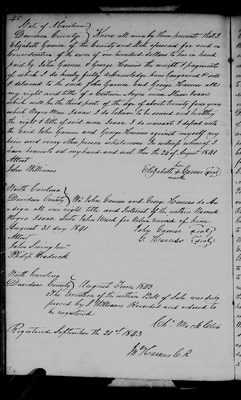 State of N Carolina
Davidson County Know all men by these presents that I
Elizabeth Garner of the County and State aforesaid for and in
Consideration of the sum of one hundred dollars to me in hand
paid by John Garner & George Harris the receipt & payment
of which I do hereby fully acknowledge have bargained & sold
& delivered to the said John Garner and George Harris all
my right and title of a certain Negro man Slave Isaac
which will be the third part of the age of about twenty four years
which Negro Man Isaac I do to be sound and healthy
the right & title of said man Isaac I do warrant & defend unto
the said John Garner and George Harris against myself my
heirs and every other person whatsoever In witness whereof I
have hereunto set my hand and seal this the 24 of August 1841
Attest
John Williams
her
Elizabeth X Garner (seal)
mark
North Carolina
Davidson County We John Garner and George Harris do
assign all our right title and Interest of the within Named
Negro Isaac unto John Ward for value received of him
August 31 day 1841
John Garner (seal)
Attest
G. Harris (seal)
Philip Hedrick
North Carolina
Davidson County August Term 1843
The Execution of the within Bill of Sale was duly
proved by J Williams Recorded and ordered to
be registered
Ch. Mock Clk
Registered September the 21st 1843